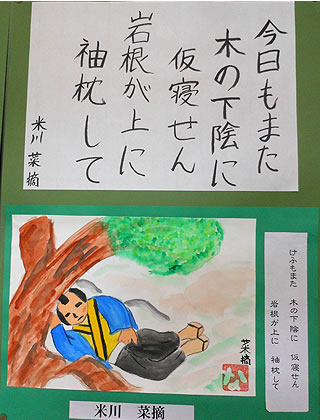 今日もまた
木の下陰に
仮寝せん
岩根が上に
袖枕して
米川 菜摘
けふもまた 木の下陰に 仮寝せん
岩根が上に 袖枕して
菜摘
な
米川 菜摘